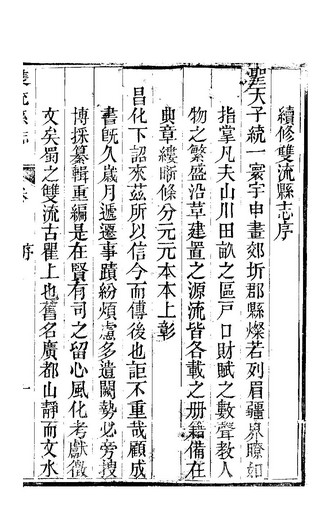 續修雙流縣志序
聖天子統一寰宇申畫郊圻郡縣燦若列眉疆界瞭如
指掌凡夫山川田畝之區戶口財賦之數聲教人
物之繁盛沿革建置之源流皆各載之册籍備在
典章縷晰條分元元本本上彰
昌化下詔來茲所以信今而傳後也詎不重哉顧成
書旣久歲月遞遷事蹟紛煩慮多遺闕勢必旁搜
博採纂輯重編是在賢有司之留心風化考獻徵
文矣蜀之雙流古瞿上也舊名廣都山靜而文水
雙流縣志
序
一